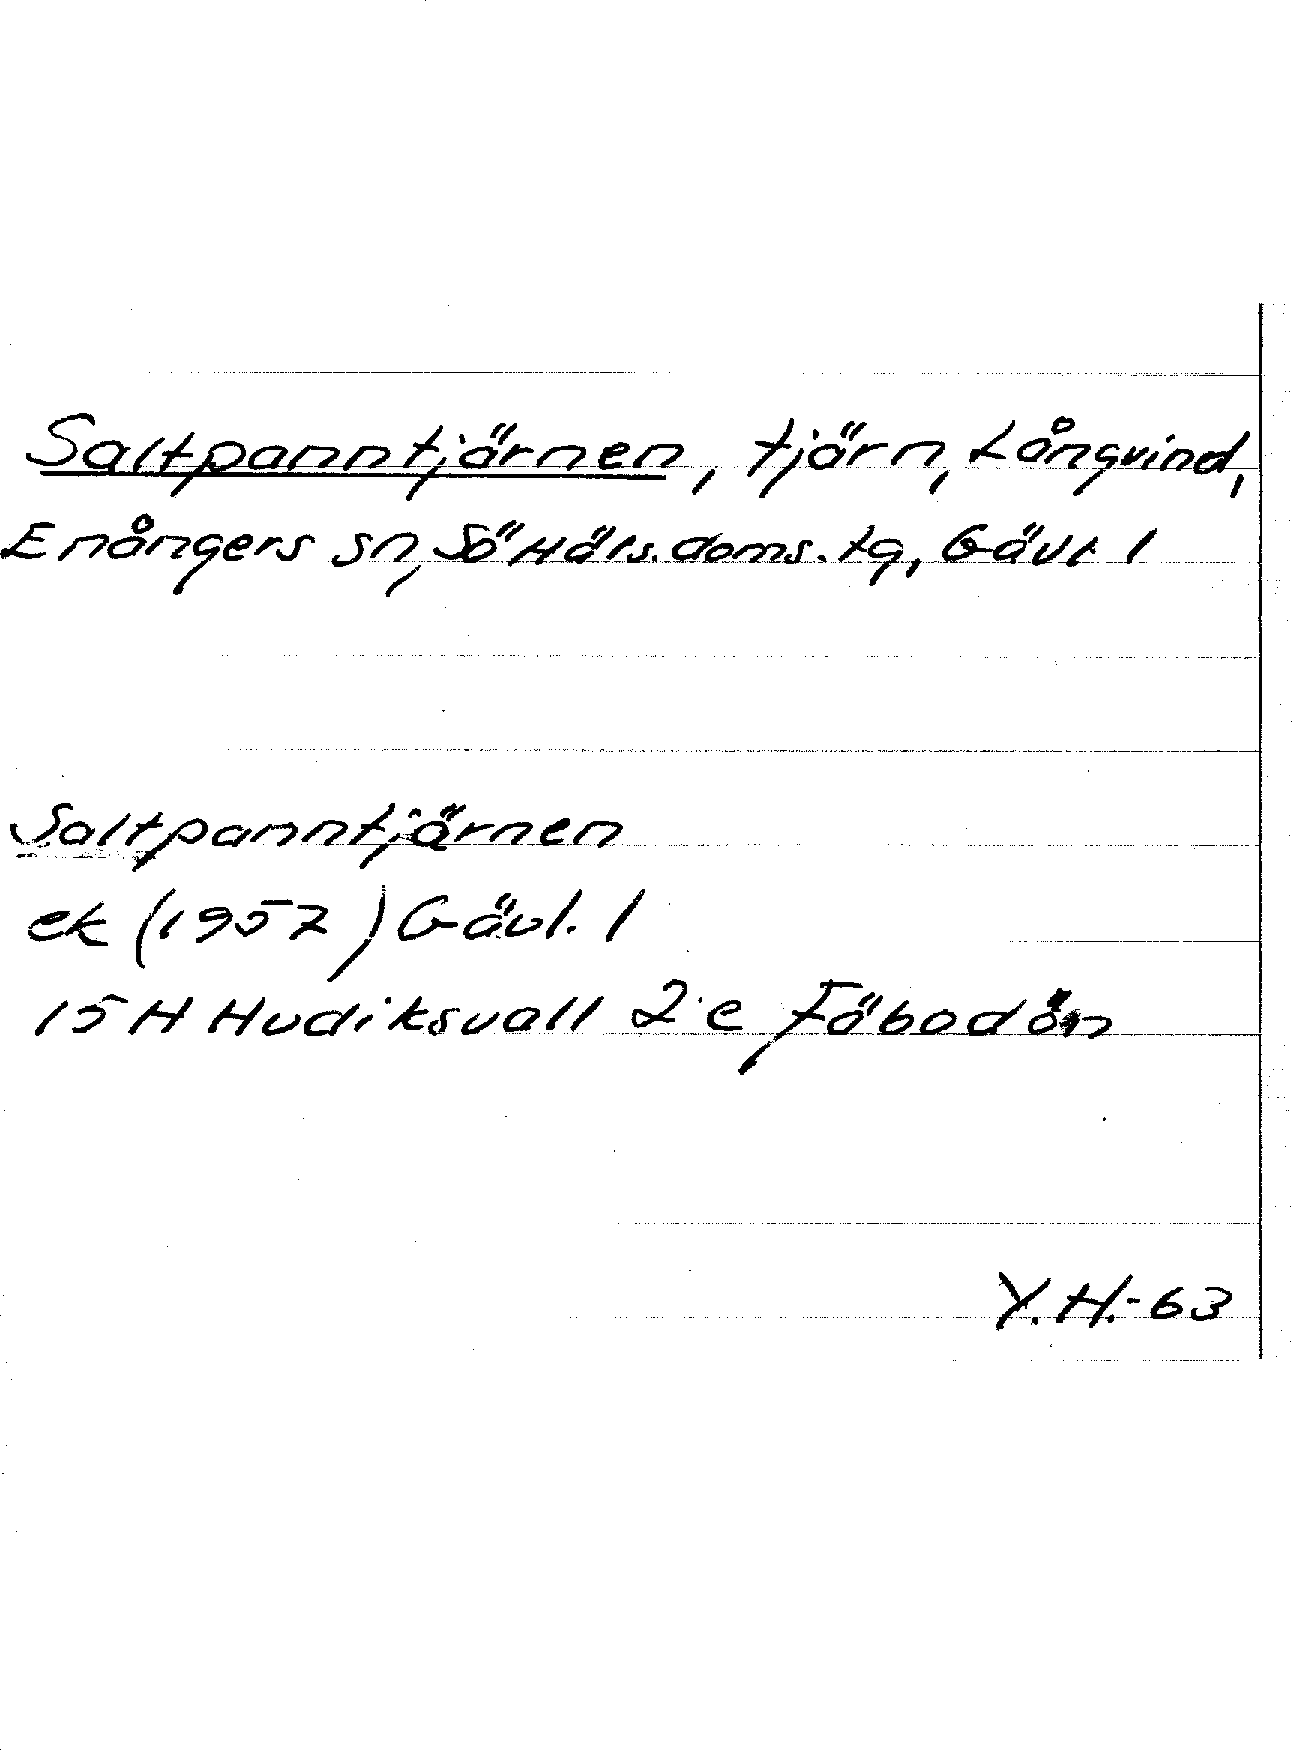 Saltpanntjärnen, tjärn, Långvind,
Enångers sn, Sö Häls. doms. tg, Gävl. l
Saltpanntjärnen
ek (1957) Gävl. l
15H Hudiksvall 2 e Fäbodön
Y.H.-63